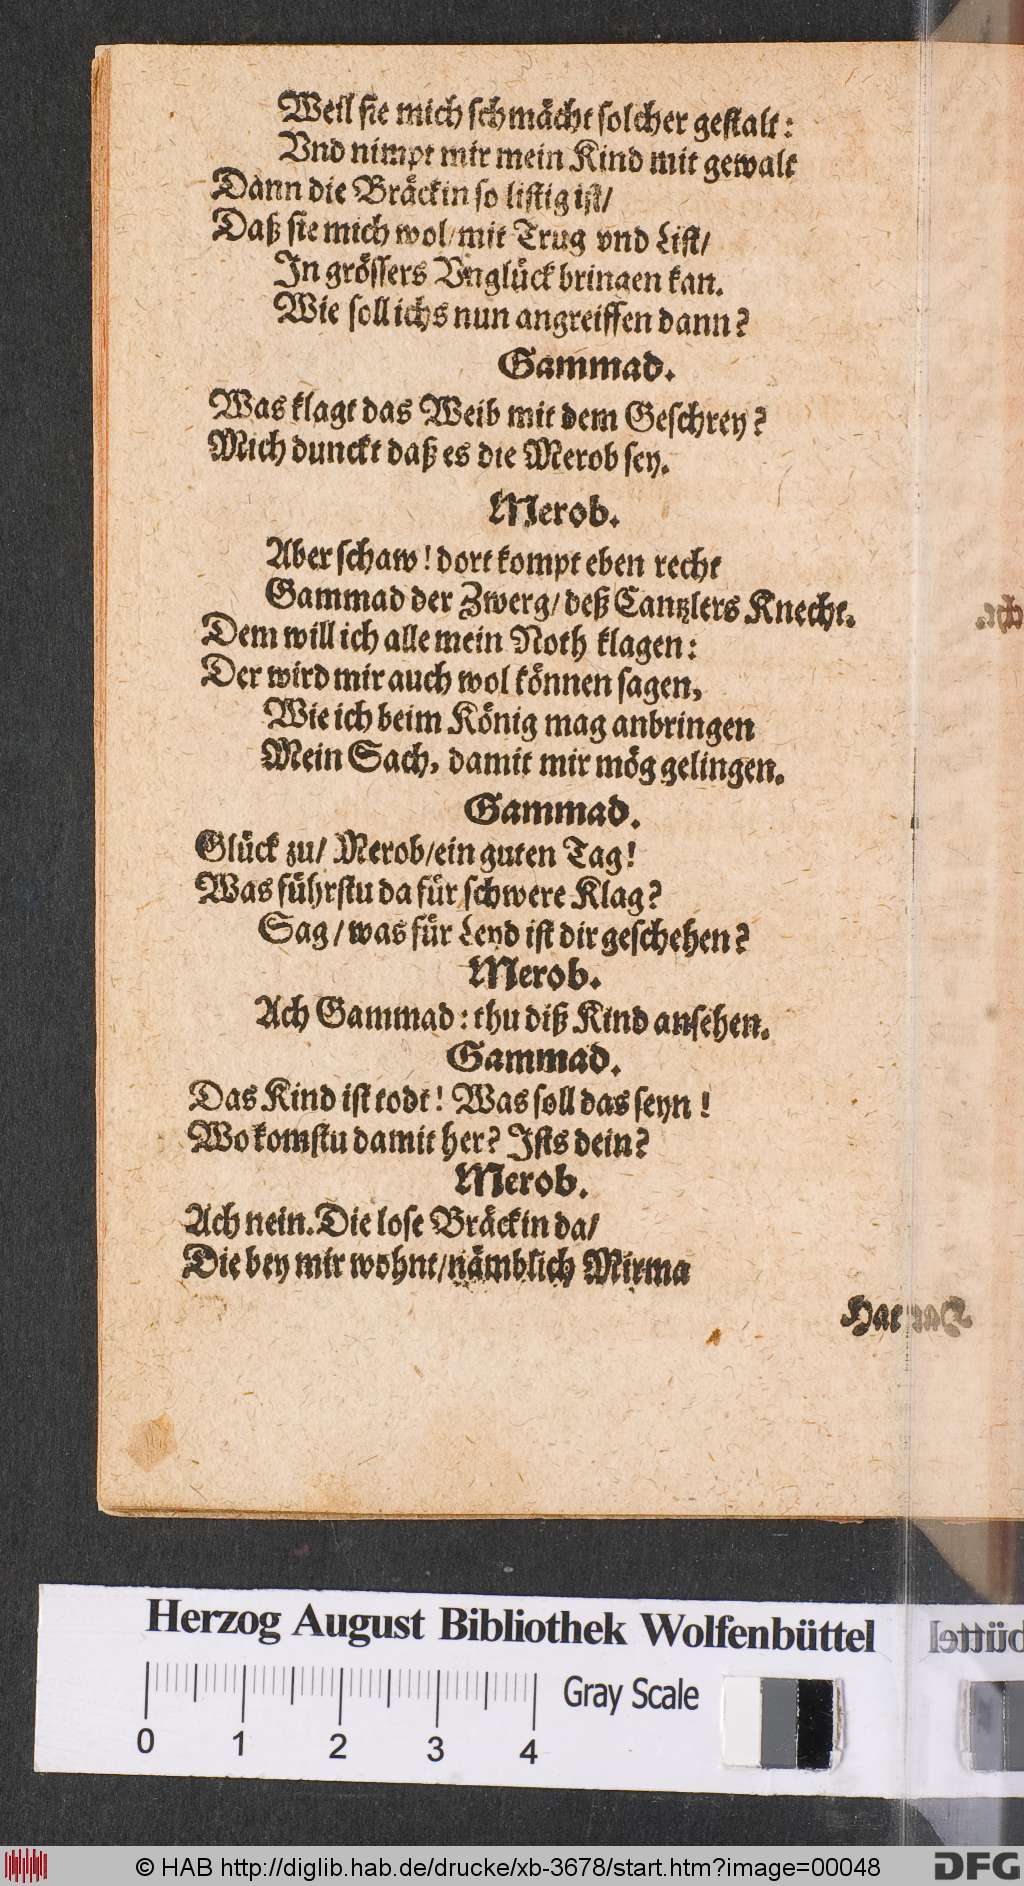 Weil sie mich schmächt solcher gestalt:
Vnd nimpt mir mein Kind mit gewalt
Dann die Bräckin so listig ist/
Daß sie mich wol/mit Trug vnd List/
In grössers Vnglück bringen kan.
Wie soll ichs nun angreiffen dann?
Gammad.
Was klagt das Weib mit dem Geschrey?
Mich dunckt daß es die Merob sey.
Merob.
Aber schaw! dort kompt eben recht
Gammad der Zwerg/ deß Cantzlers Knecht.
Dem will ich alle mein Noth klagen:
Der wird mir auch wol können sagen,
Wie ich beim König mag anbringen
Mein Sach, damit mir mög gelingen.
Gammad.
Glück zu/ Merob/ein guten Tag!
Was führstu da für schwere Klag?
Sag/was für Leyd ist dir geschehen?
Merob.
Ach Gammad: thu diß Kind ansehen.
Gammad.
Das Kind ist todt! Was soll das seyn!
Wo komstu damit her? Ists dein?
Merob.
Ach nein. Die lose Bräckin da/
Die bey mir wohnt/nämblich Mirma
Hat
Herzog August Bibliothek Wolfenbüttel
Gray Scale
0 1 2 3 4
© HAB http://diglib.hab.de/drucke/xb-3678/start.htm?image=00048
DFG